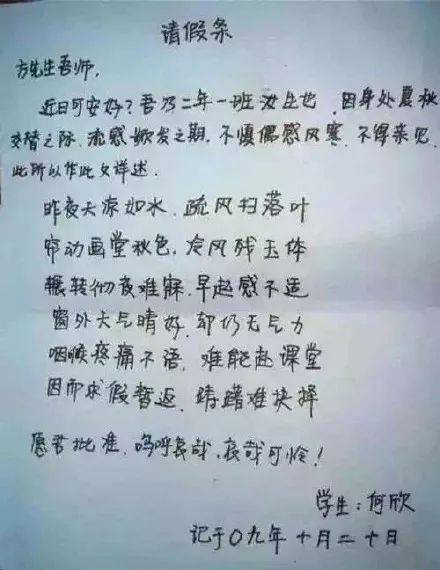 请假条
方先生吾师，
近日可安好？吾乃二年一班汝生也，因身处夏秋
交替之际，流感频发之期，不慎偶感风寒，不得亲见，
此所以作此文详述．
昨夜天凉如水，疏风扫落叶
帘动画堂秋色，冷风残玉体
辗转彻夜难寐，早起感不适
窗外天气晴好，却仍无气力
咽喉疼痛不语，难能赴课堂
因而求假暂返，踌躇难抉择
愿君批准，呜呼哀哉，哀哉可怜！
学生：何欣
记于〇九年十月二十日